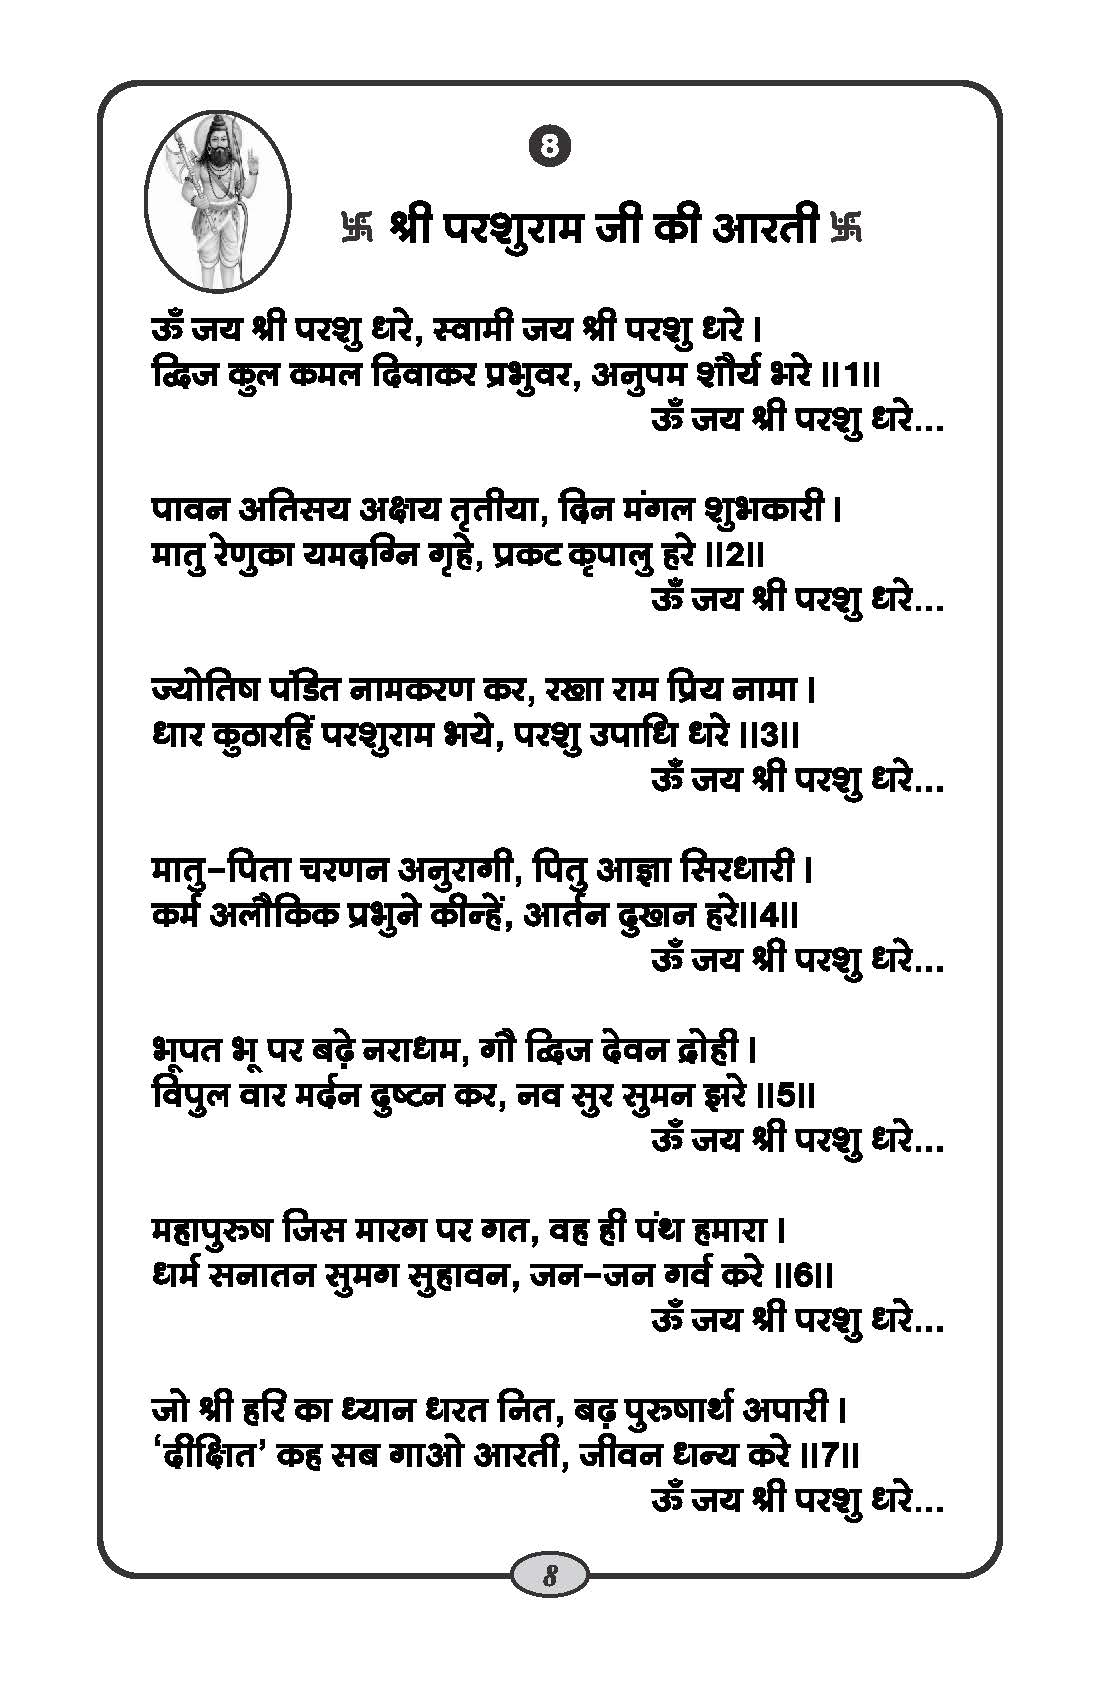 8
卐 श्री परशुराम जी की आरती 卐
ऊँ जय श्री परशु धरे, स्वामी जय श्री परशु धरे ।
द्विज कुल कमल दिवाकर प्रभुवर, अनुपम शौर्य भरे ।।1।।
ऊँ जय श्री परशु धरे...
पावन अतिसय अक्षय तृतीया, दिन मंगल शुभकारी ।
मातु रेणुका यमदग्नि गृहे, प्रकट कृपालु हरे ।।2।।
ऊँ जय श्री परशु धरे...
ज्योतिष पंडित नामकरण कर, रखा राम प्रिय नामा ।
धार कुठारहिं परशुराम भये, परशु उपाधि धरे ।।3।।
ऊँ जय श्री परशु धरे...
मातु-पिता चरणन अनुरागी, पितु आज्ञा सिरधारी ।
कर्म अलौकिक प्रभुने कीन्हें, आर्तन दुखान हरे।।4।।
ऊँ जय श्री परशु धरे...
भूपत भू पर बढ़े नराधम, गौ द्विज देवन द्रोही ।
विपुल वार मर्दन दुष्टन कर, नव सुर सुमन झरे ।।5।।
ऊँ जय श्री परशु धरे...
महापुरुष जिस मारग पर गत, वह ही पंथ हमारा ।
धर्म सनातन सुमग सुहावन, जन-जन गर्व करे ।।6।।
ऊँ जय श्री परशु धरे...
जो श्री हरि का ध्यान धरत नित, बढ़ पुरुषार्थ अपारी ।
‘दीक्षित’ कह सब गाओ आरती, जीवन धन्य करे ।।7।।
ऊँ जय श्री परशु धरे...
8